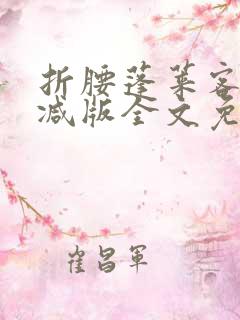 折腰蓬莱客
减版全文免
崔昌军